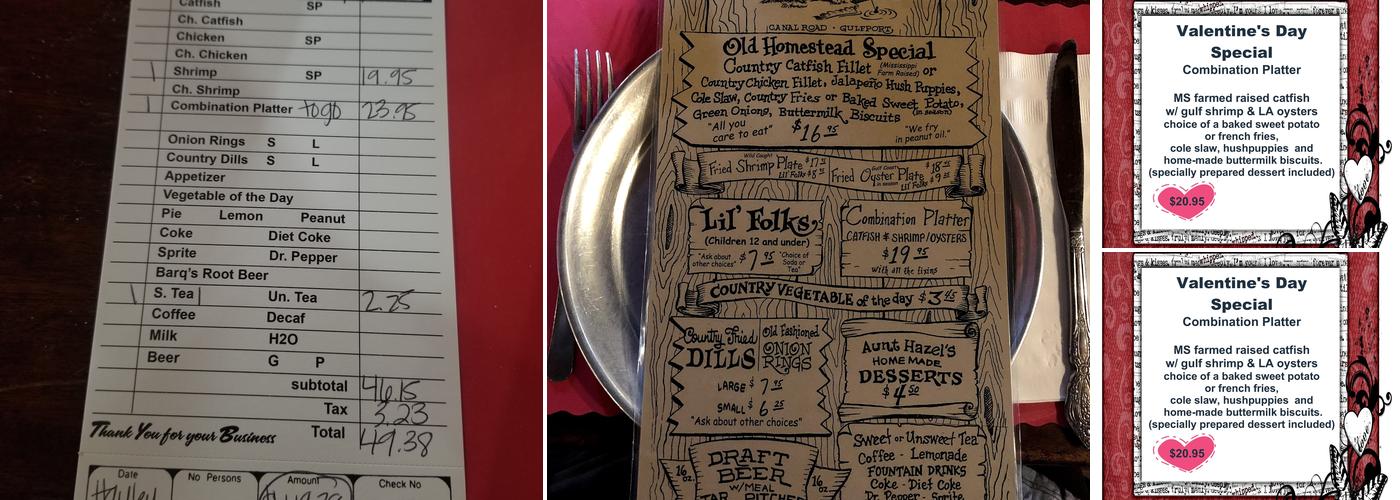 Catfish SP
Ch. Catfish
Chicken SP
Ch. Chicken
1 Shrimp SP 19.95
Ch. Shrimp
1 Combination Platter to go 23.95
Onion Rings S L
Country Dills S L
Appetizer
Vegetable of the Day
Pie Lemon Peanut
Coke Diet Coke
Sprite Dr. Pepper
Barq's Root Beer
1 S. Tea Un. Tea 2.25
Coffee Decaf
Milk H2O
Beer G P
subtotal 46.15
Tax 3.23
Thank You for your Business Total 49.38
Date No Persons Amount Check No
CANAL ROAD - GULFPORT
Old Homestead Special
Country Catfish Fillet (Mississippi Farm Raised) or
Country Chicken Fillet, Jalapeño Hush Puppies,
Cole Slaw, Country Fries or Baked Sweet Potato,
(in season)
Green Onions, Buttermilk Biscuits
"All you care to eat" $16 95 "We fry in peanut oil."
Wild Caught
Fried Shrimp Plate
Lil' Folks
Gulf Coast
Fried Oyster Plate $18
in season
Lil' Folks $9
Lil' Folks
(Children 12 and under)
"Ask about other choices" $7 95 "Choice of Soda or Tea"
Combination Platter
CATFISH & SHRIMP/OYSTERS
$19 95
with all the fixins
COUNTRY VEGETABLE of the day $3 45
Country Fried
DILLS
Old Fashioned
ONION
RINGS
LARGE $7 95
SMALL $6 25
"Ask about other choices"
Aunt Hazel's
HOME MADE
DESSERTS
$4 50
DRAFT
BEER
W/MEAL
16 oz.
16 oz.
JAR PITCHER
Sweet or Unsweet Tea
Coffee - Lemonade
FOUNTAIN DRINKS
Coke - Diet Coke
Dr. Pepper - Sprite
Valentine's Day
Special
Combination Platter
MS farmed raised catfish
w/ gulf shrimp & LA oysters
choice of a baked sweet potato
or french fries,
cole slaw, hushpuppies and
home-made buttermilk biscuits.
(specially prepared dessert included)
$20.95
love
Valentine's Day
Special
Combination Platter
MS farmed raised catfish
w/ gulf shrimp & LA oysters
choice of a baked sweet potato
or french fries,
cole slaw, hushpuppies and
home-made buttermilk biscuits.
(specially prepared dessert included)
$20.95
love